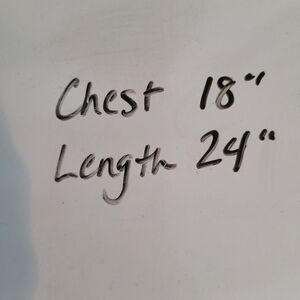 Chest 18"
Length 24"